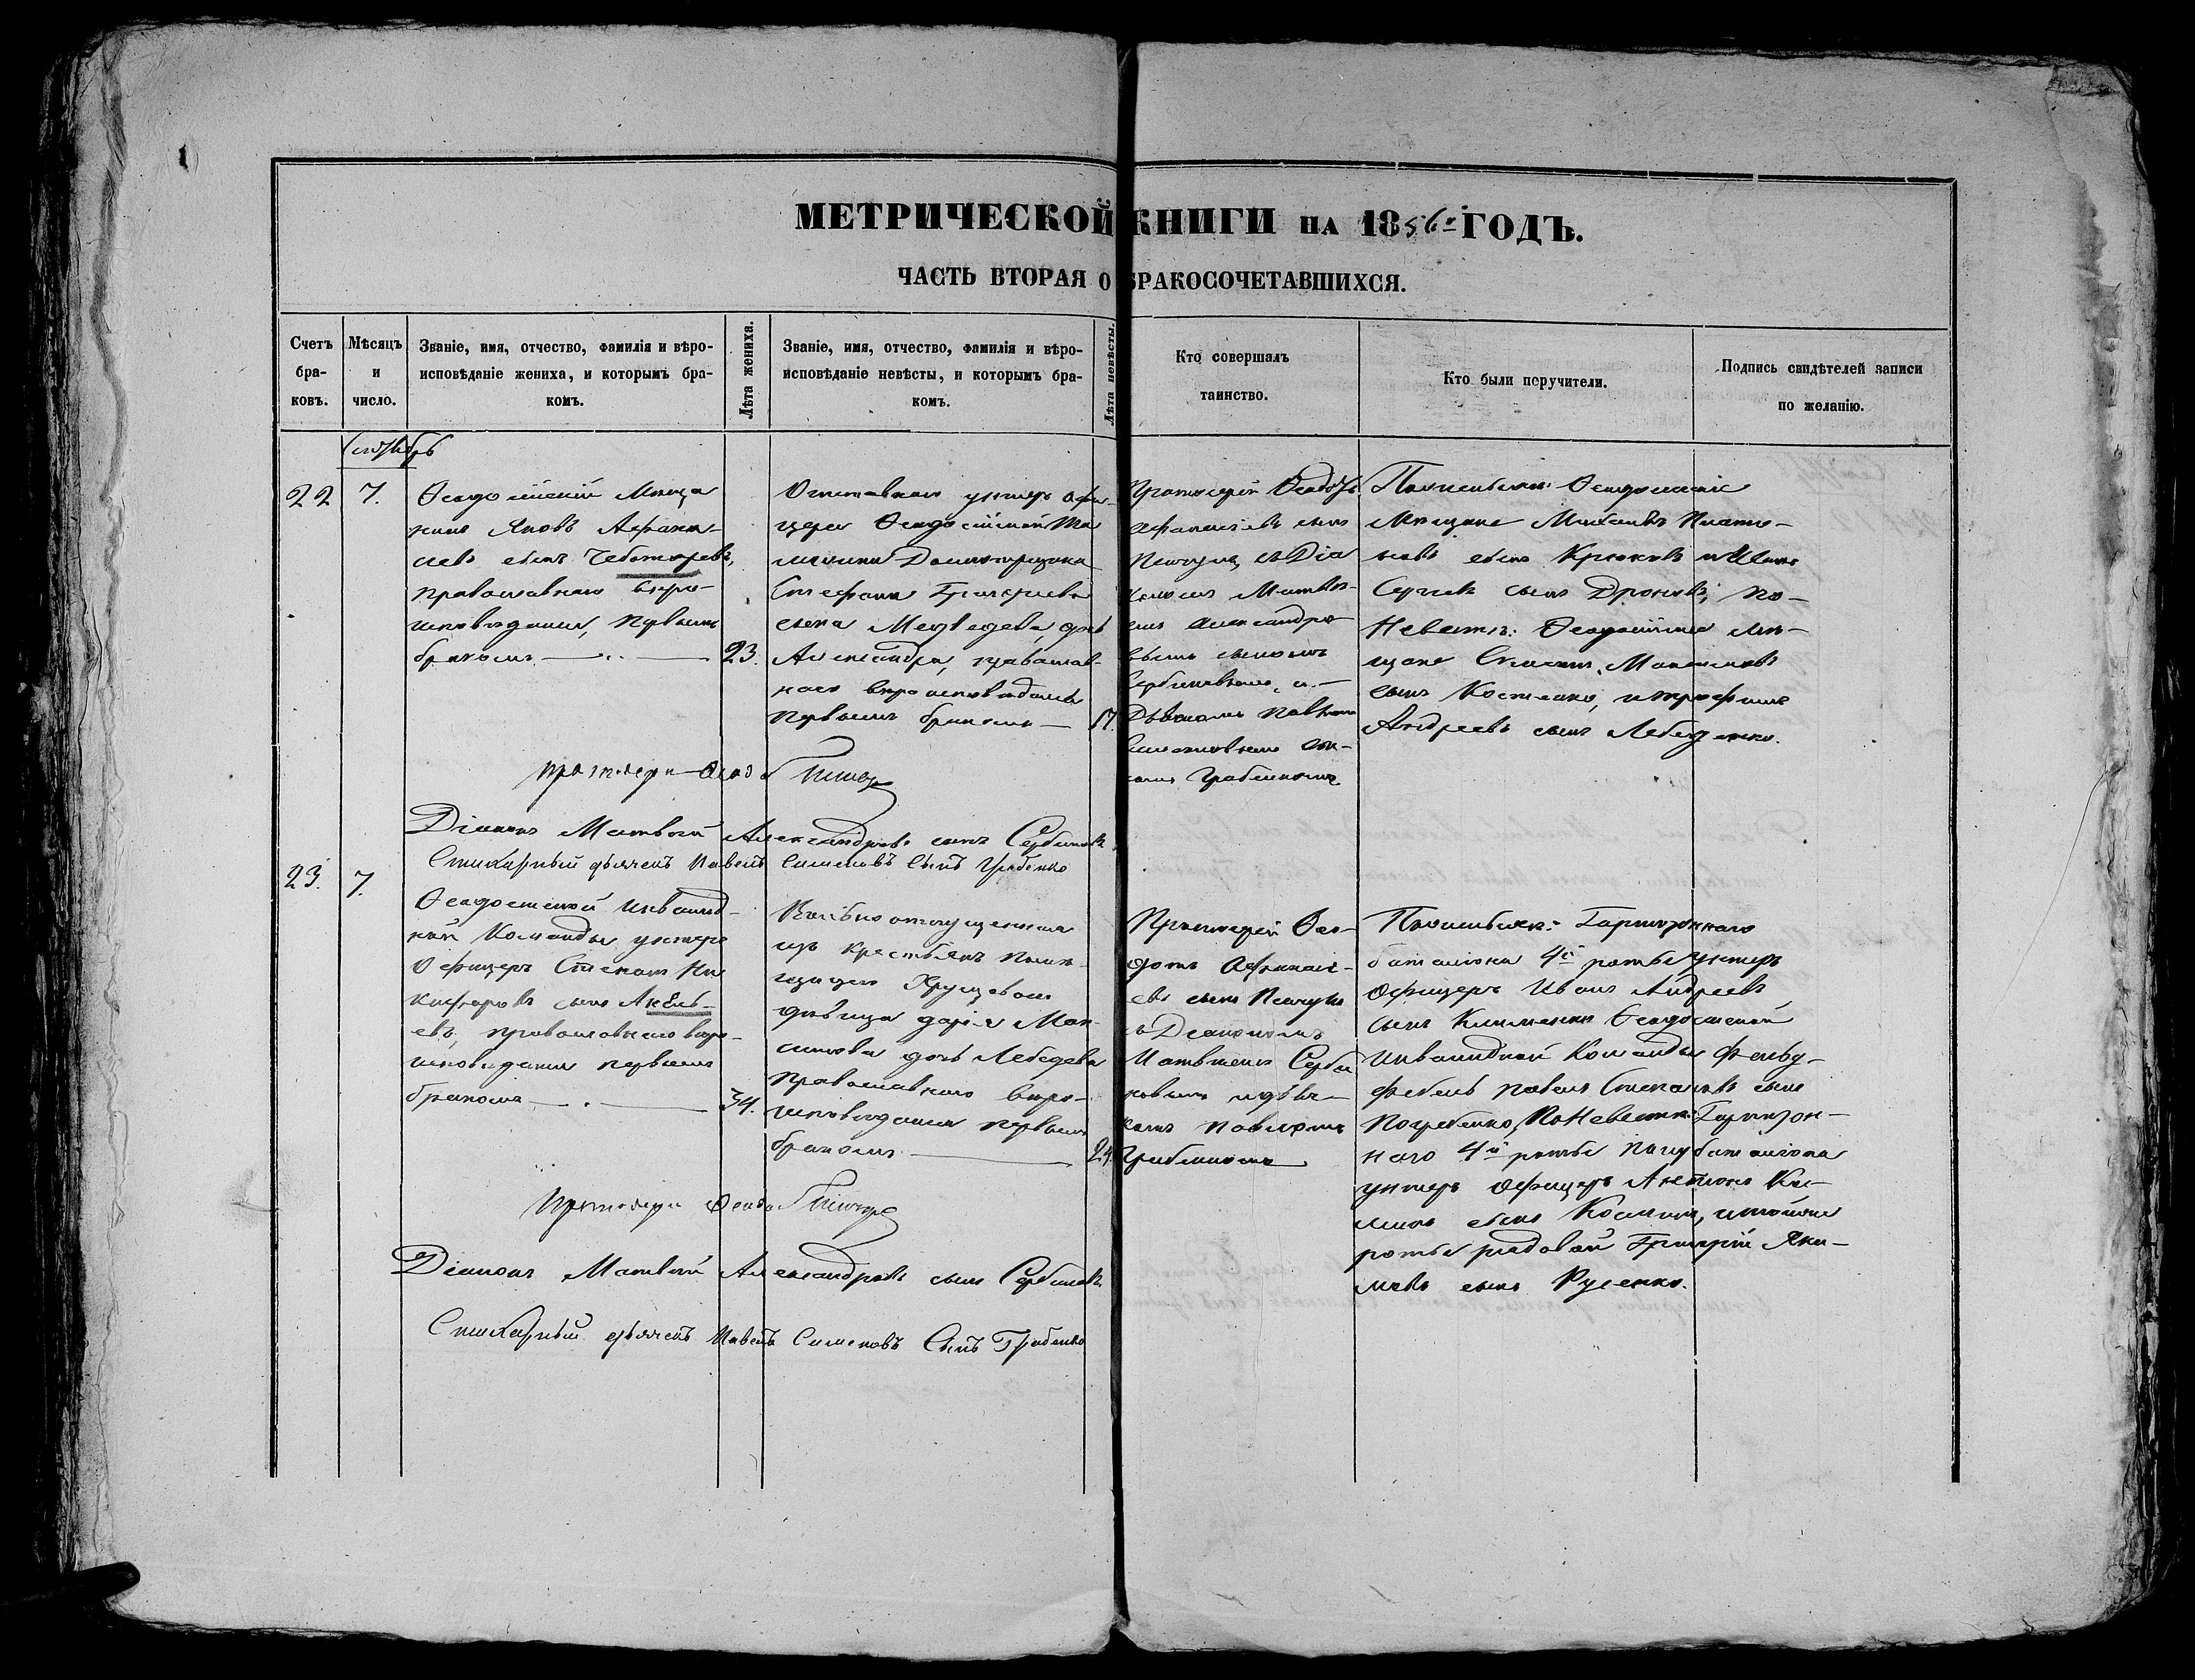 МЕТРИЧЕСКОЙ КНИГИ НА 1856й ГОДЪ.
ЧАСТЬ ВТОРАЯ О БРАКОСОЧЕТАВШИХСЯ.
Счетъ бра-ковъ.
Мѣсяцъ и число.
Званіе, имя, отчество, фамилія и вѣро-
исповѣданіе жениха, и которымъ бра-
комъ.
Лѣта жениха.
Званіе, имя, отчество, фамилія и вѣро-
исповѣданіе невѣсты, и которымъ бра-
комъ.
Лѣта невѣсты.
Кто совершалъ
таинство.
Кто были поручители.
Подпись свидѣтелей записи
по желанію.
22
7.
Ѳеодосійскій Мѣща
нинъ Яковъ Афанась-
евъ сынъ Чеботаревъ,
православнаго вѣро-
исповѣданія, первымъ
бракомъ
23.
Отставнаго унтеръ офи-
цера Ѳеодосійской Та
можни Досмотрщика
Стефана Григорьева
сына Медведева дочь
Александра, православ-
наго вѣроисповѣданія
первымъ бракомъ
17.
Протоіерей
Афанасіевъ сынъ
съ Діа
кономъ Матвѣ-
емъ Александро-
вымъ сыномъ
Сербиновымъ, и
Павломъ
Симоновымъ сы-
номъ Грабенкомъ
Ѳеодосійскіе
Мѣщане Михаилъ
сынъ Крюковъ и
Сергѣевъ сынъ Дроновъ, по-
Невѣстѣ: Ѳеодосійскіе мѣ-
щане
сынъ Костенко, и Трофимъ
Андреевъ сынъ Лебеденко.
Протоіерей
Діаконъ Матвѣй Александровъ сынъ Сербиновъ
Стихарный дьячекъ Павелъ Симоновъ Сынъ Грабенко
23.
7.
Ѳеодосійской Инвалид-
ной Команды унтеръ
Офицеръ Степанъ Ни
кифоровъ сынъ
евъ, православнаго вѣро-
исповѣданія первымъ
бракомъ
34.
Вольноотпущенная
изъ крестьянъ помѣ-
щицы Хрущевой
дѣвица Дарія Мак-
симова дочь Лебедева
православнаго вѣро-
исповѣданія первымъ
бракомъ
24.
Протоіерей Ѳео-
дотъ Афанасі-
евъ сынъ
съ Діакономъ
Матвѣемъ Серби
новымъ и дьяч-
комъ Павломъ
Грабенкомъ
Гарнизоннаго
баталіона 4й роты унтеръ
Офицеръ Иванъ Андреевъ
сынъ Клименко Ѳеодосійской
инвалидной Команды фельд-
фебель Павелъ Степановъ сынъ
Погребенко, По Невѣстѣ: Гарнизон-
наго 4й роты баталіона
унтеръ Офицеръ Антонъ
сынъ
роты рядовой Григорій Яки-
мовъ сынъ Русенко.
Протоіерей
Діаконъ Матвѣй Александровъ сынъ Сербиновъ
Стихарный дьячекъ Павелъ Симоновъ Сынъ Грабенко